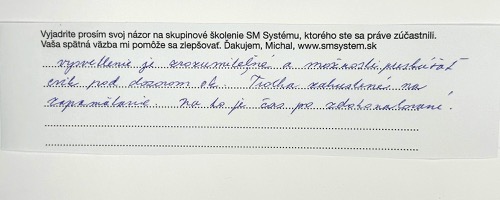 Vyjadrite prosím svoj názor na skupinové školenie SM Systému, ktorého ste sa práve zúčastnili.
Vaša spätná väzba mi pomôže sa zlepšovať. Ďakujem, Michal, www.smsystem.sk
vysvetlenie je zrozumiteľné a možnosti
cvik pod dozorom ok Trocha na
zapamätanie. na to je čas po zdokonalovaní.